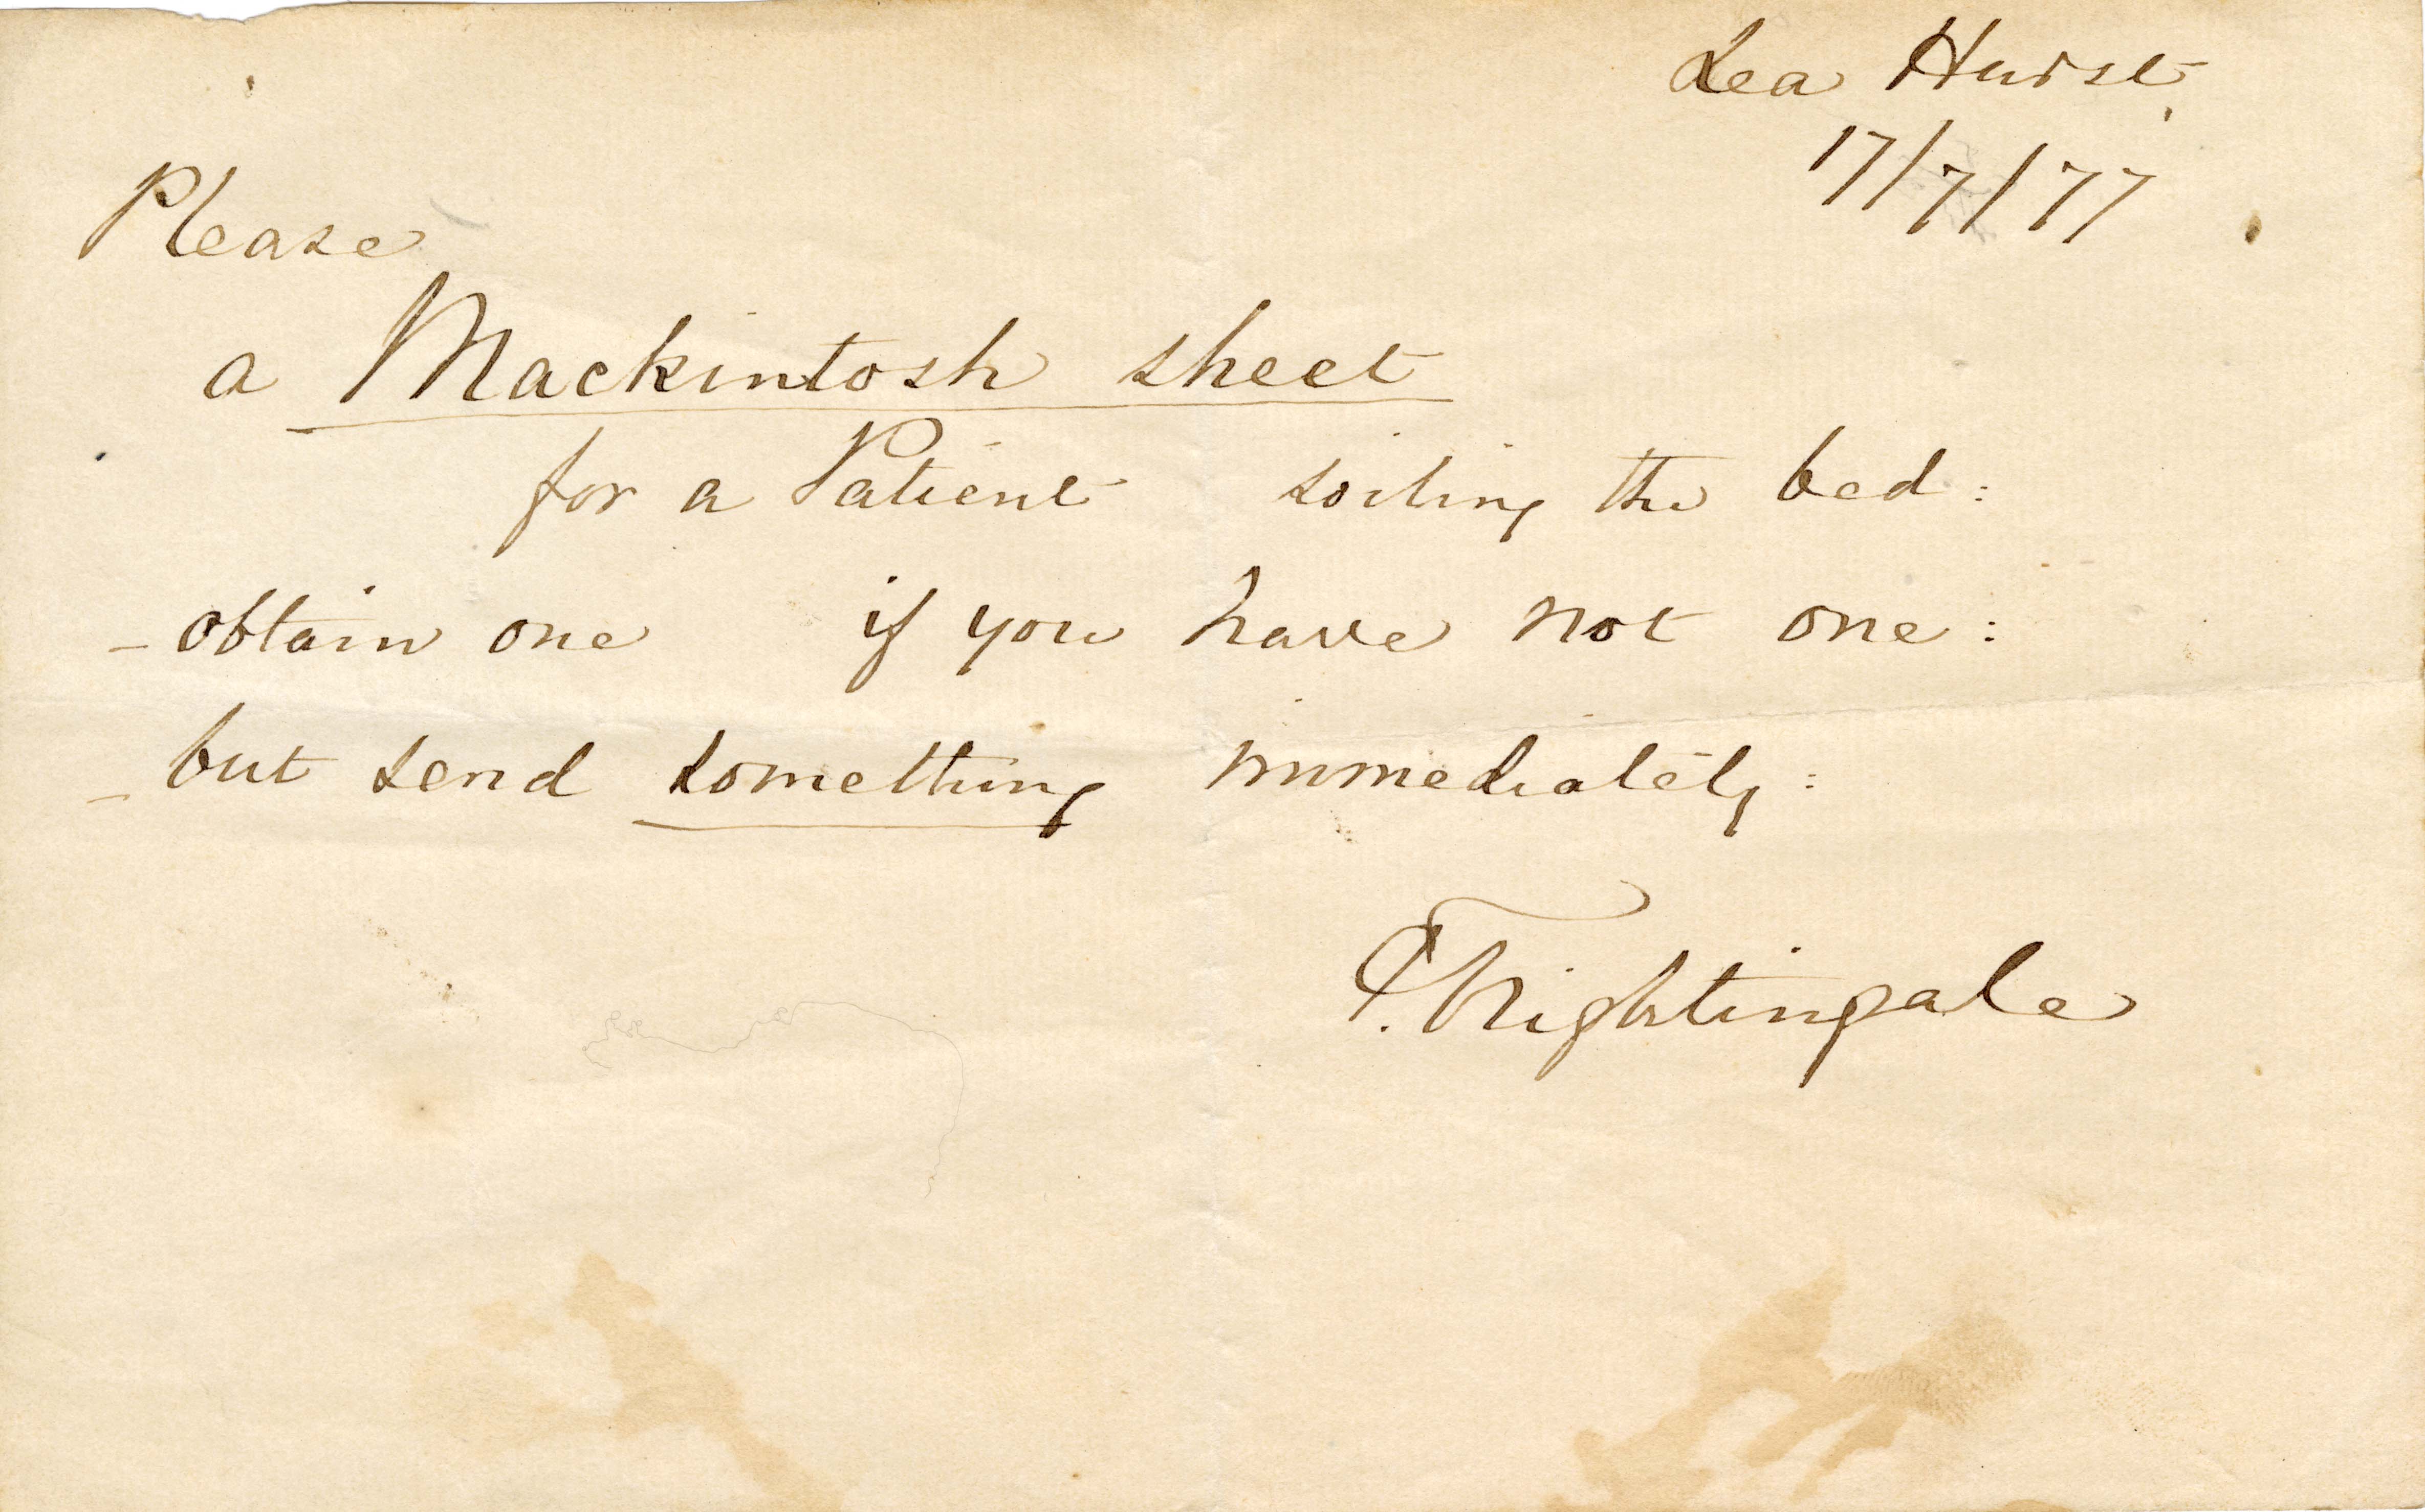 Lea Hurst
17/7/77
Please
a Mackintosh sheet
for a Patient soiling the bed:
- obtain one if you have not one:
- but send something immediately:
F. Nightingale